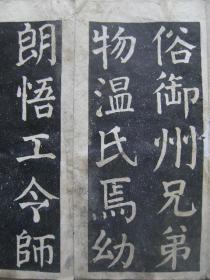 俗御州兄弟
物温氏焉幼
朗悟工令師